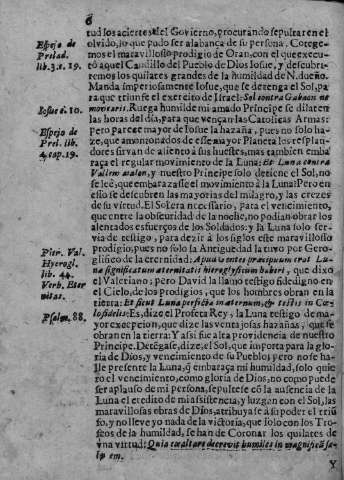 6
tud los aciertos del Govierno, procurando sepultar en el
olvido, lo que pudo ser alabança de su persona. Coteje-
mos el maravilloso prodigio de Oran, con el que execu-
tò aquel Caudillo del Pueblo de Dios Iosue, y descubri-
remos los quilates grandes de la humildad de N. dueño.
Manda imperiosamente Iosue, que se detenga el Sol, pa-
ra que triunfe el exercito de Israel: Sol contra Gabaon ne
movearis. Ruega humilde mi amado Principe se dilaten
las horas del dia, para que vençan las Catolicas Armas:
pero parece mayor de Iosue la hazaña, pues no solo ha-
ze, que amanonados de esse mayor Planeta los resplan-
dores sirvan de aliento à sus huestes, mas tambien emba-
raça el regular movimiento de la Luna: Et Luna contra
Vallem Aialon, y nuestro Principe solo detiene el Sol, no
se leè, que embarazasse el movimiento à la Luna: Pero en
esso se descubren las mayorias del milagro, y las crezes
de su virtud. El Sol era necessario, para el vencimiento,
que entre la obscuridad de la noche, no podian obrar los
alentados esfuerços de los Soldados: y la Luna solo ser-
via de testigo, para dezir à los siglos este maravilloso
prodigio, pues no solo la Antiguedad la tuvo por Gero-
glifico de la eternidad: Apud omnes præcipuum erat Lu-
na significatum æternitatis hieroglyficum haberi, que dixo
el Valeriano; pero David la llamò testigo fidedigno en
el Cielo, de los prodigios, que los hombres obran en la
tierra: Et sicut Luna perfecta in æternum, & testis in Cœ-
lo fidelis: Es, dize el Profeta Rey, la Luna testigo de ma-
yor excepcion, que dize las ventajosas hazañas, que se
obran en la tierra: Y assi fue alta providencia de nuestro
Principe. Detẽgase, dize, el Sol, que importa para la glo-
ria de Dios, y vencimiento de su Pueblo; pero no se ha-
lle presente la Luna, q̃ embaraça mi humildad, solo quie
ro el vencimiento, como gloria de Dios, no como puede
ser aplauso de mi persona, sepultese cõ la ausencia de la
Luna el credito de mi assistencia, y luzgan con el Sol, las
maravillosas obras de Dios, atribuyase à su poder el triũ
fo, y no lleve yo nada de la victoria, que solo con los Tro-
feos de la humildad, se han de Coronar los quilates de
vna virtud: Quia exaltare decrevit humiles in magnificã sa-
lutem.
Y
Espejo de
Prelad.
lib. 3. c. 19.
Iosue c. 10.
Espejo de
Prel. lib.
4. cap. 19.
Pier. Val.
Hyerogl.
lib. 44.
Verb. Eter
nitas.
Psalm. 88.